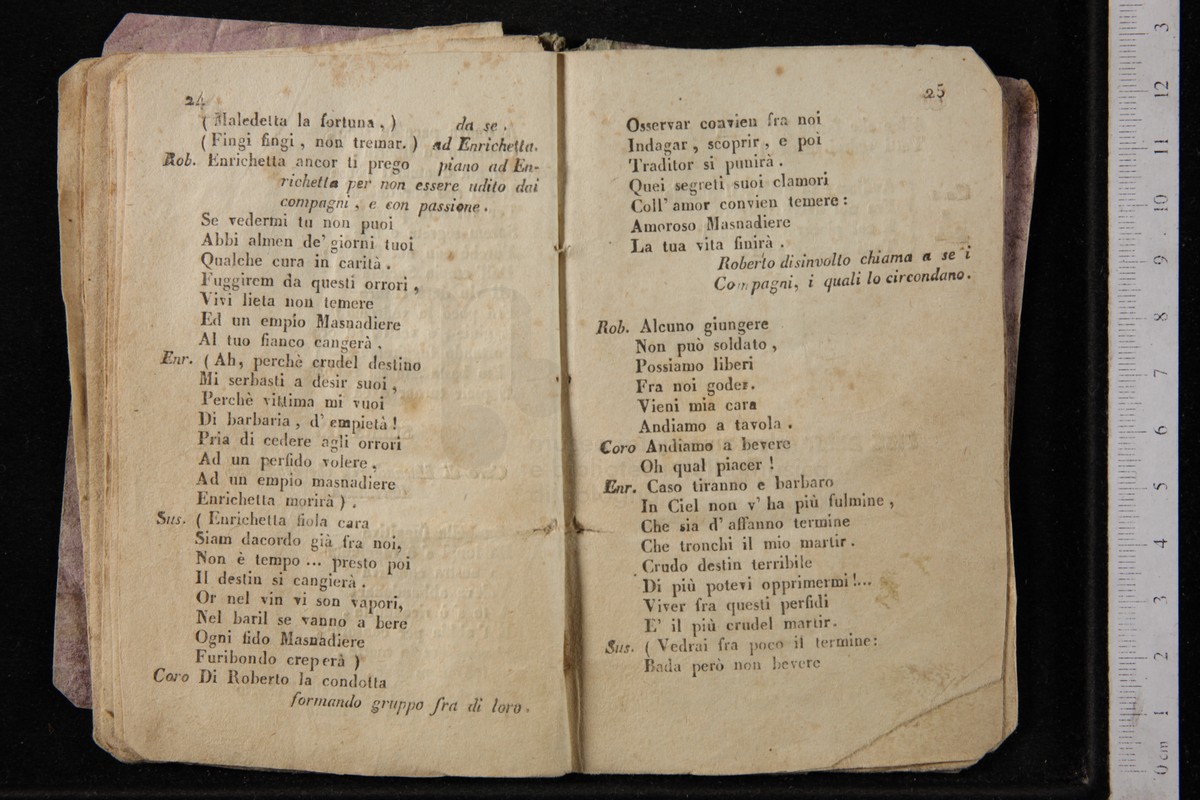 24
( Maledetta la fortuna , ) da se .
( Fingi fingi , non tremar. ) ad Enrichetta.
Rob. Enrichetta ancor ti prego piano ad En-
richetta per non essere udito dai
compagni , e con passione .
Se vedermi tu non puoi
Abbi almen de' giorni tuoi
Qualche cura in carità .
Fuggirem da questi orrori ,
Vivi lieta non temere
Ed un empio Masnadiere
Al tuo fianco cangerà .
Enr. ( Ah, perchè crudel destino
Mi serbasti a desir suoi ,
Perchè vittima mi vuoi
Di barbaria , d' empietà !
Pria di cedere agli orrori
Ad un perfido volere ,
Ad un empio masnadiere
Enrichetta morirà ) .
Sus. ( Enrichetta fiola cara
Siam dacordo già fra noi,
Non è tempo ... presto poi
Il destin si cangierà .
Or nel vin vi son vapori,
Nel baril se vanno a bere
Ogni fido Masnadiere
Furibondo creperà )
Coro Di Roberto la condotta
formando gruppo fra di loro .
25
Osservar convien fra noi
Indagar , scoprir , e poi
Traditor si punirà .
Quei segreti suoi clamori
Coll' amor convien temere :
Amoroso Masnadiere
La tua vita finirà .
Roberto disinvolto chiama a se i
Compagni, i quali lo circondano.
Rob. Alcuno giungere
Non può soldato ,
Possiamo liberi
Fra noi goder.
Vieni mia cara
Andiamo a tavola .
Coro Andiamo a bevere
Oh qual piacer !
Enr. Caso tiranno e barbaro
In Ciel non v' ha più fulmine ,
Che sia d' affanno termine
Che tronchi il mio martir .
Crudo destin terribile
Di più potevi opprimermi !...
Viver fra questi perfidi
E' il più crudel martir.
Sus. ( Vedrai fra poco il termine:
Bada però non bevere
0 cm 1 2 3 4 5 6 7 8 9 10 11 12 3